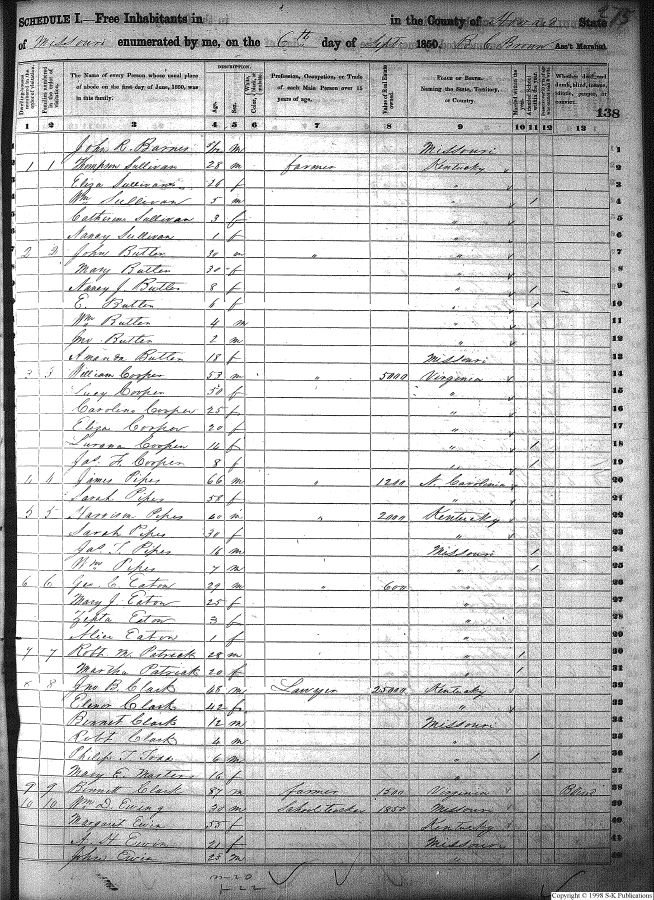 SCHEDULE I.—Free Inhabitants in in the County of Howard State 275
of Missouri enumerated by me, on the 6th day of Sept 1850. B. C. Brown Ass't Marshal.
The Name of every Person whose usual place of abode on the first day of June, 1850, was in this family.
DESCRIPTION.
Age. Sex. Color,
Profession, Occupation, or Trade of each Male Person over 15 years of age.
Value of Real Estate owned.
PLACE OF BIRTH. Naming the State, Territory, or Country.
138
1 2 3 4 5 6 7 8 9 10 11 12 13
John R. Barnes m Missouri 1
1 1 Thompson Sullivan 28 m farmer Kentucky 2
Eliza Sullivan 26 f " 3
Wm Sullivan 5 m " 1 4
Catherine Sullivan 3 f " 5
Nancy Sullivan 1 f " 6
2 2 John Butler 30 m " " 7
Mary Butler 30 f " 8
Nancy J Butler 8 f " 1 9
E. Butler 6 f " 1 10
Wm Butler 4 m " 11
Jno Butler 2 m " 12
Amanda Butler 18 f Missouri 13
3 3 William Cooper 53 m " 5000 Virginia 14
Lucy Cooper 50 f " 15
Caroline Cooper 25 f " 16
Eliza Cooper 20 f " 17
Lurana Cooper 16 f " 1 18
Jas F. Cooper 8 f " 1 19
4 4 James Pipes 66 m " 1200 N. Carolina 20
Sarah Pipes 58 f " 21
5 5 Harrison Pipes 40 m " 2000 Kentucky 22
Sarah Pipes 30 f "
Jas T. Pipes 16 m Missouri 1 24
Wm Pipes 7 m " 1 25
6 6 Geo C. Eaton 29 m " 600 " 26
Mary J. Eaton 25 f " 27
Zepta Eaton 3 f " 28
Alice Eaton 1 f " 29
7 7 Robt M. Patrick 28 m " 1 30
Martha Patrick 20 f " 1 31
8 Jno B. Clark 48 m Lawyer 25000 Kentucky
Elenor Clark 42 f "
Bennet Clark 12 m Missouri
Robt Clark 4 m " 35
Philip T. 6 m " 1 36
Mary E. Masters 16 f "
9 9 Bennett Clark 87 m farmer 1500 Virginia Blind 38
10 10 Wm D. Ewing 30 m School teacher 1850 Missouri
Margaret Ewin 55 f Kentucky 40
A. H. Ewin 21 f Missouri 41
John Ewin 25 m "
m-20
f-22
Copyright © 1998 S-K Publications